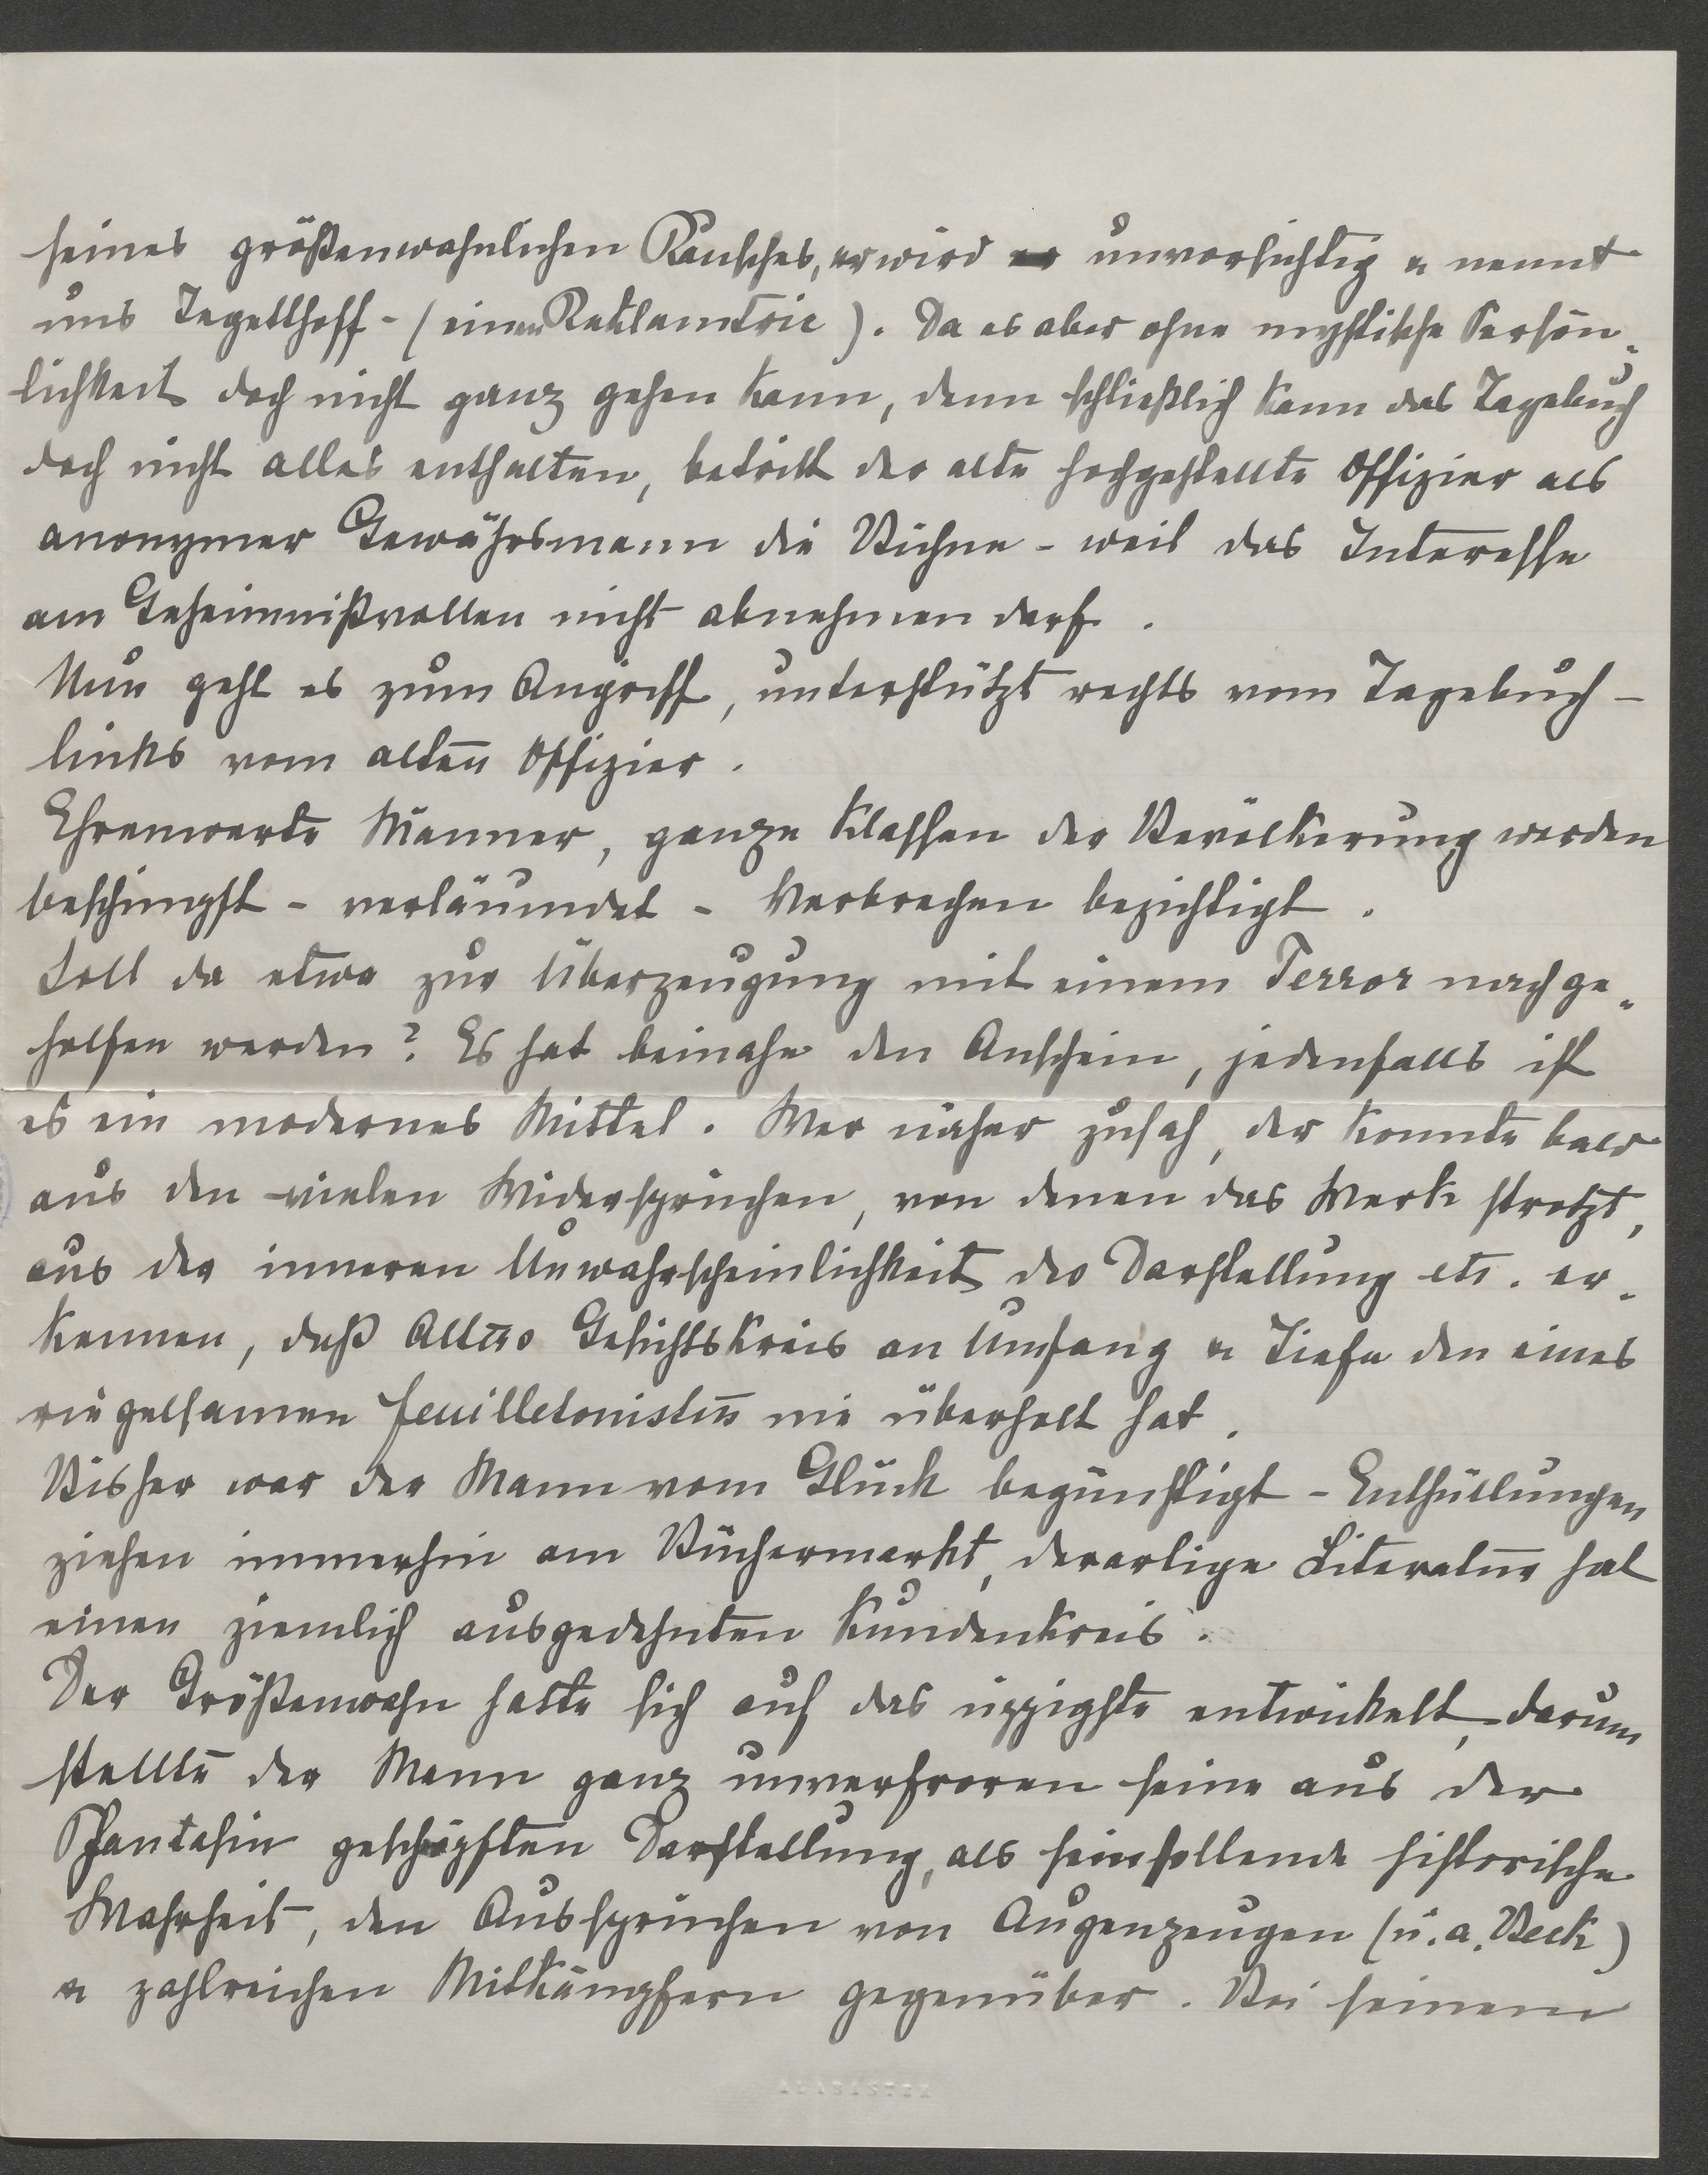 seines größenwahnlichen Rausches, er wird er unvorsichtig u nennt
uns Tegetthoff - (einen Reklametric). Da es aber ohne mystische Persön„
lichkeit doch nicht ganz gehen kann, denn schließlich kann das Tagebuch
doch nicht alles enthalten, betritt der alte hochgestellte Offizier als
anonymer Gewährsmann die Bühne - weil das Interesse
am Geheimnißvollen nicht abnehmen darf.
Nun geht es zum Angriff, unterstützt rechts vom Tagebuch -
links vom alten Offizier.
Ehrenwerte Männer, ganze Klassen der Bevölkerung werden
beschimpft - verläumdet - Verbrechen bezichtigt.
Soll da etwa zur Überzeugung mit einem Terror nachge„
holfen werden? Es hat beinahe den Anschein, jedenfalls ist
es ein modernes Mittel. Wer näher zusah, der konnte bald
aus den vielen Widersprüchen, von denen das Werk strotzt,
aus der inneren Unwahrscheinlichkeit der Darstellung etc. er„
kennen, daß Gesichtskreis an Umfang u Tiefe den eines
feuilletonisten nie überholt hat.
Bisher war der Mann vom Glück begünstigt - Enthüllungen
ziehen immerhin am Büchermarkt, derartige Literatur hat
einen ziemlich ausgedehnten Kundenkreis.
Der Größenwahn hatte sich auf das üppigste entwickelt, darum
stellte der Mann ganz unverfroren seine aus der
Phantasie geschöpften Darstellung, als seinsollende historische
Wahrheit, den Aussprüchen von Augenzeugen (u. a. Beck)
u zahlreichen Mitkämpfern gegenüber. Bei seinem